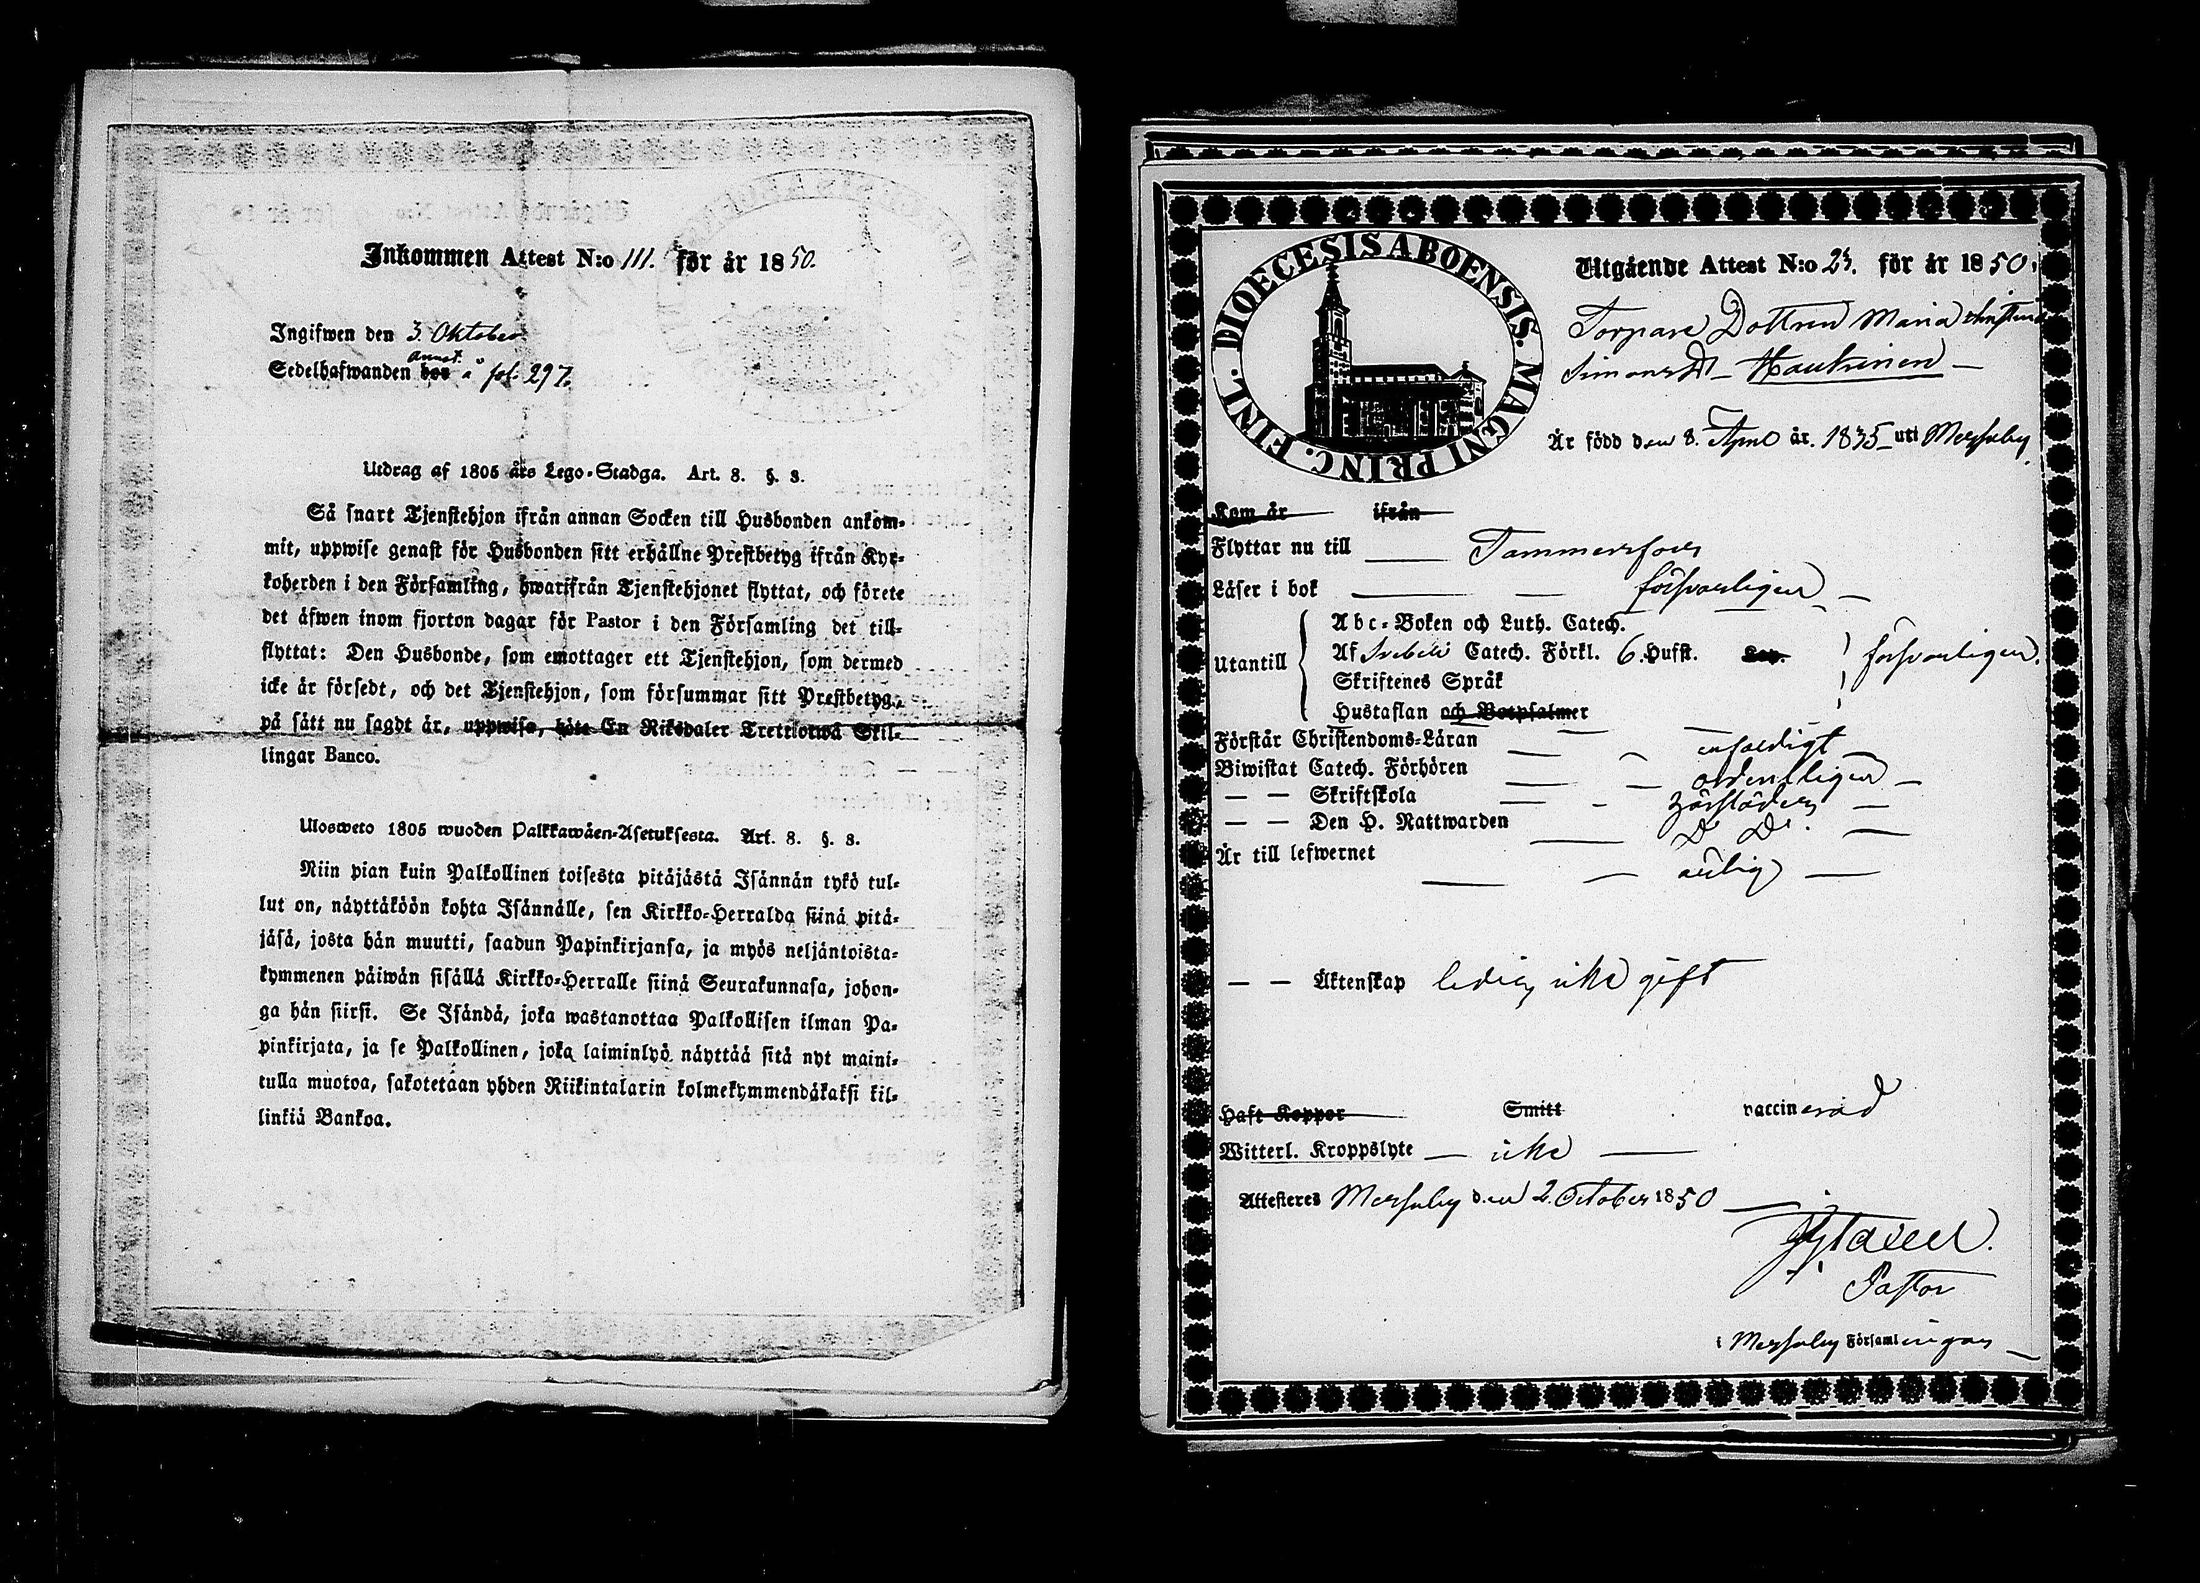 Inkommen Attest N:o 111. för år 1850.
Ingifwen den 3. Oktober
annot.
Sedelhafwanden hos å fol. 297.
Utdrag af 1805 års Lego-Stadga. Art. 8. §. 8.
Så snart Tjenstehjon ifrån annan Socken till Husbonden ankom-
mit, uppwise genast för Husbonden sitt erhållne Prestbetyg ifrån Kyr-
koherden i den Församling, hwarifrån Tjenstehjonet flyttat, och förete
det äfwen inom fjorton dagar för Pastor i den Församling det till-
flyttat: Den Husbonde, som emottager ett Tjenstehjon, som dermed
icke är försedt, och det Tjenstehjon, som försummar sitt Prestbetyg,
på sätt nu sagdt är, uppwisa, böte En Riksdaler Trettiotwå Skil-
lingar Banco.
Ulosweto 1805 wuoden Palkkawäen-Asetuksesta. Art. 8. §. 8.
Niin pian kuin Palkollinen toisesta pitäjästä Isännän tykö tul-
lut on, näyttäköön kohta Isännälle, sen Kirkko-Herralda siinä pitä-
jäsä, josta hän muutti, saadun Papinkirjansa, ja myös neljäntoista-
kymmenen päiwän sisällä Kirkko-Herralle siinä Seurakunnasa, johon-
ga hän siirsi. Se Isändä, joka wastanottaa Palkollisen ilman Pa-
pinkirjata, ja se Palkollinen, joka laiminlyö näyttää sitä nyt maini-
tulla muotoa, sakotetaan yhden Riikintalarin kolmekymmendäkaksi kil-
linkiä Bankoa.
DIOECESIS ABOENSIS. MAGNI PRINC. FINL.
Utgående Attest N:o 23. för år 1850.
Torpare Dottren Maria Christina
Simonsdr Haukinen
Är född den 8. April år 1835 uti Messuby
Kom år ifrån
Flyttar nu till Tammersfors
Läser i bok försvarligen
Abc-Boken och Luth. Catech.
Utantill Af Svebelii Catech. Förkl. 6. Hufst. Cap. försvarligen.
Skriftenes Språk
Hustaflan och Botpsalmer
Förstår Christendoms-Läran enfaldigt
Biwistat Catech. Förhören ordentligen
— — Skriftskola
— — Den H. Nattwarden D D.
Är till lefwernet ärlig
— — Äktenskap ledig icke gift
Haft Koppor Smitt vaccinerad
Witterl. Kroppslyte — icke
Attesteres Messuby den 2. October 1850
Pastor
i Messuby Församlingar